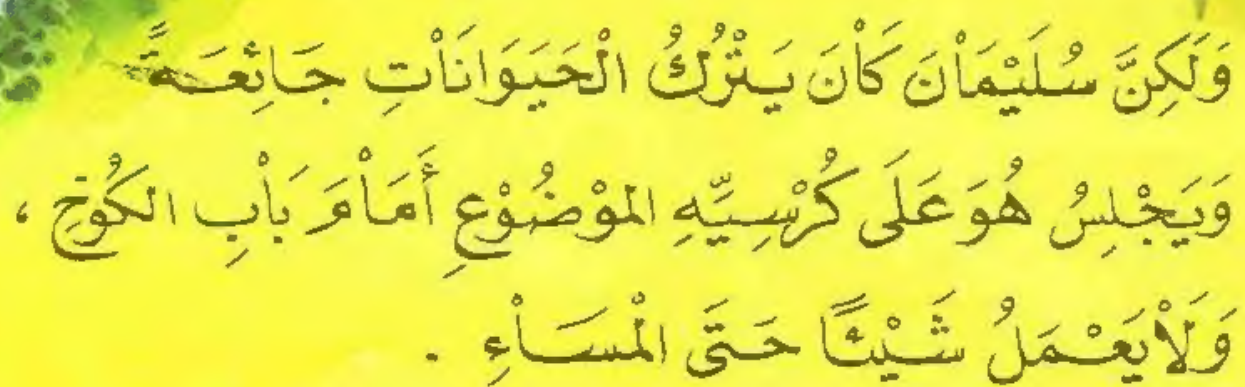 وَلَكِنَّ سُلَيْمَاْنَ كَاْنَ يَتْرُكُ الْحَيَوَانَاْتِ جَائِعَةً
وَيَجْلِسُ هُوَ عَلَى كُرْسِيِّهِ المَوْضُوْعِ أَمَاْمَ بَاْبِ الكُوْخِ ،
وَلَاْ يَعْمَلُ شَيْئًا حَتَّى الْمَسَاْءِ .